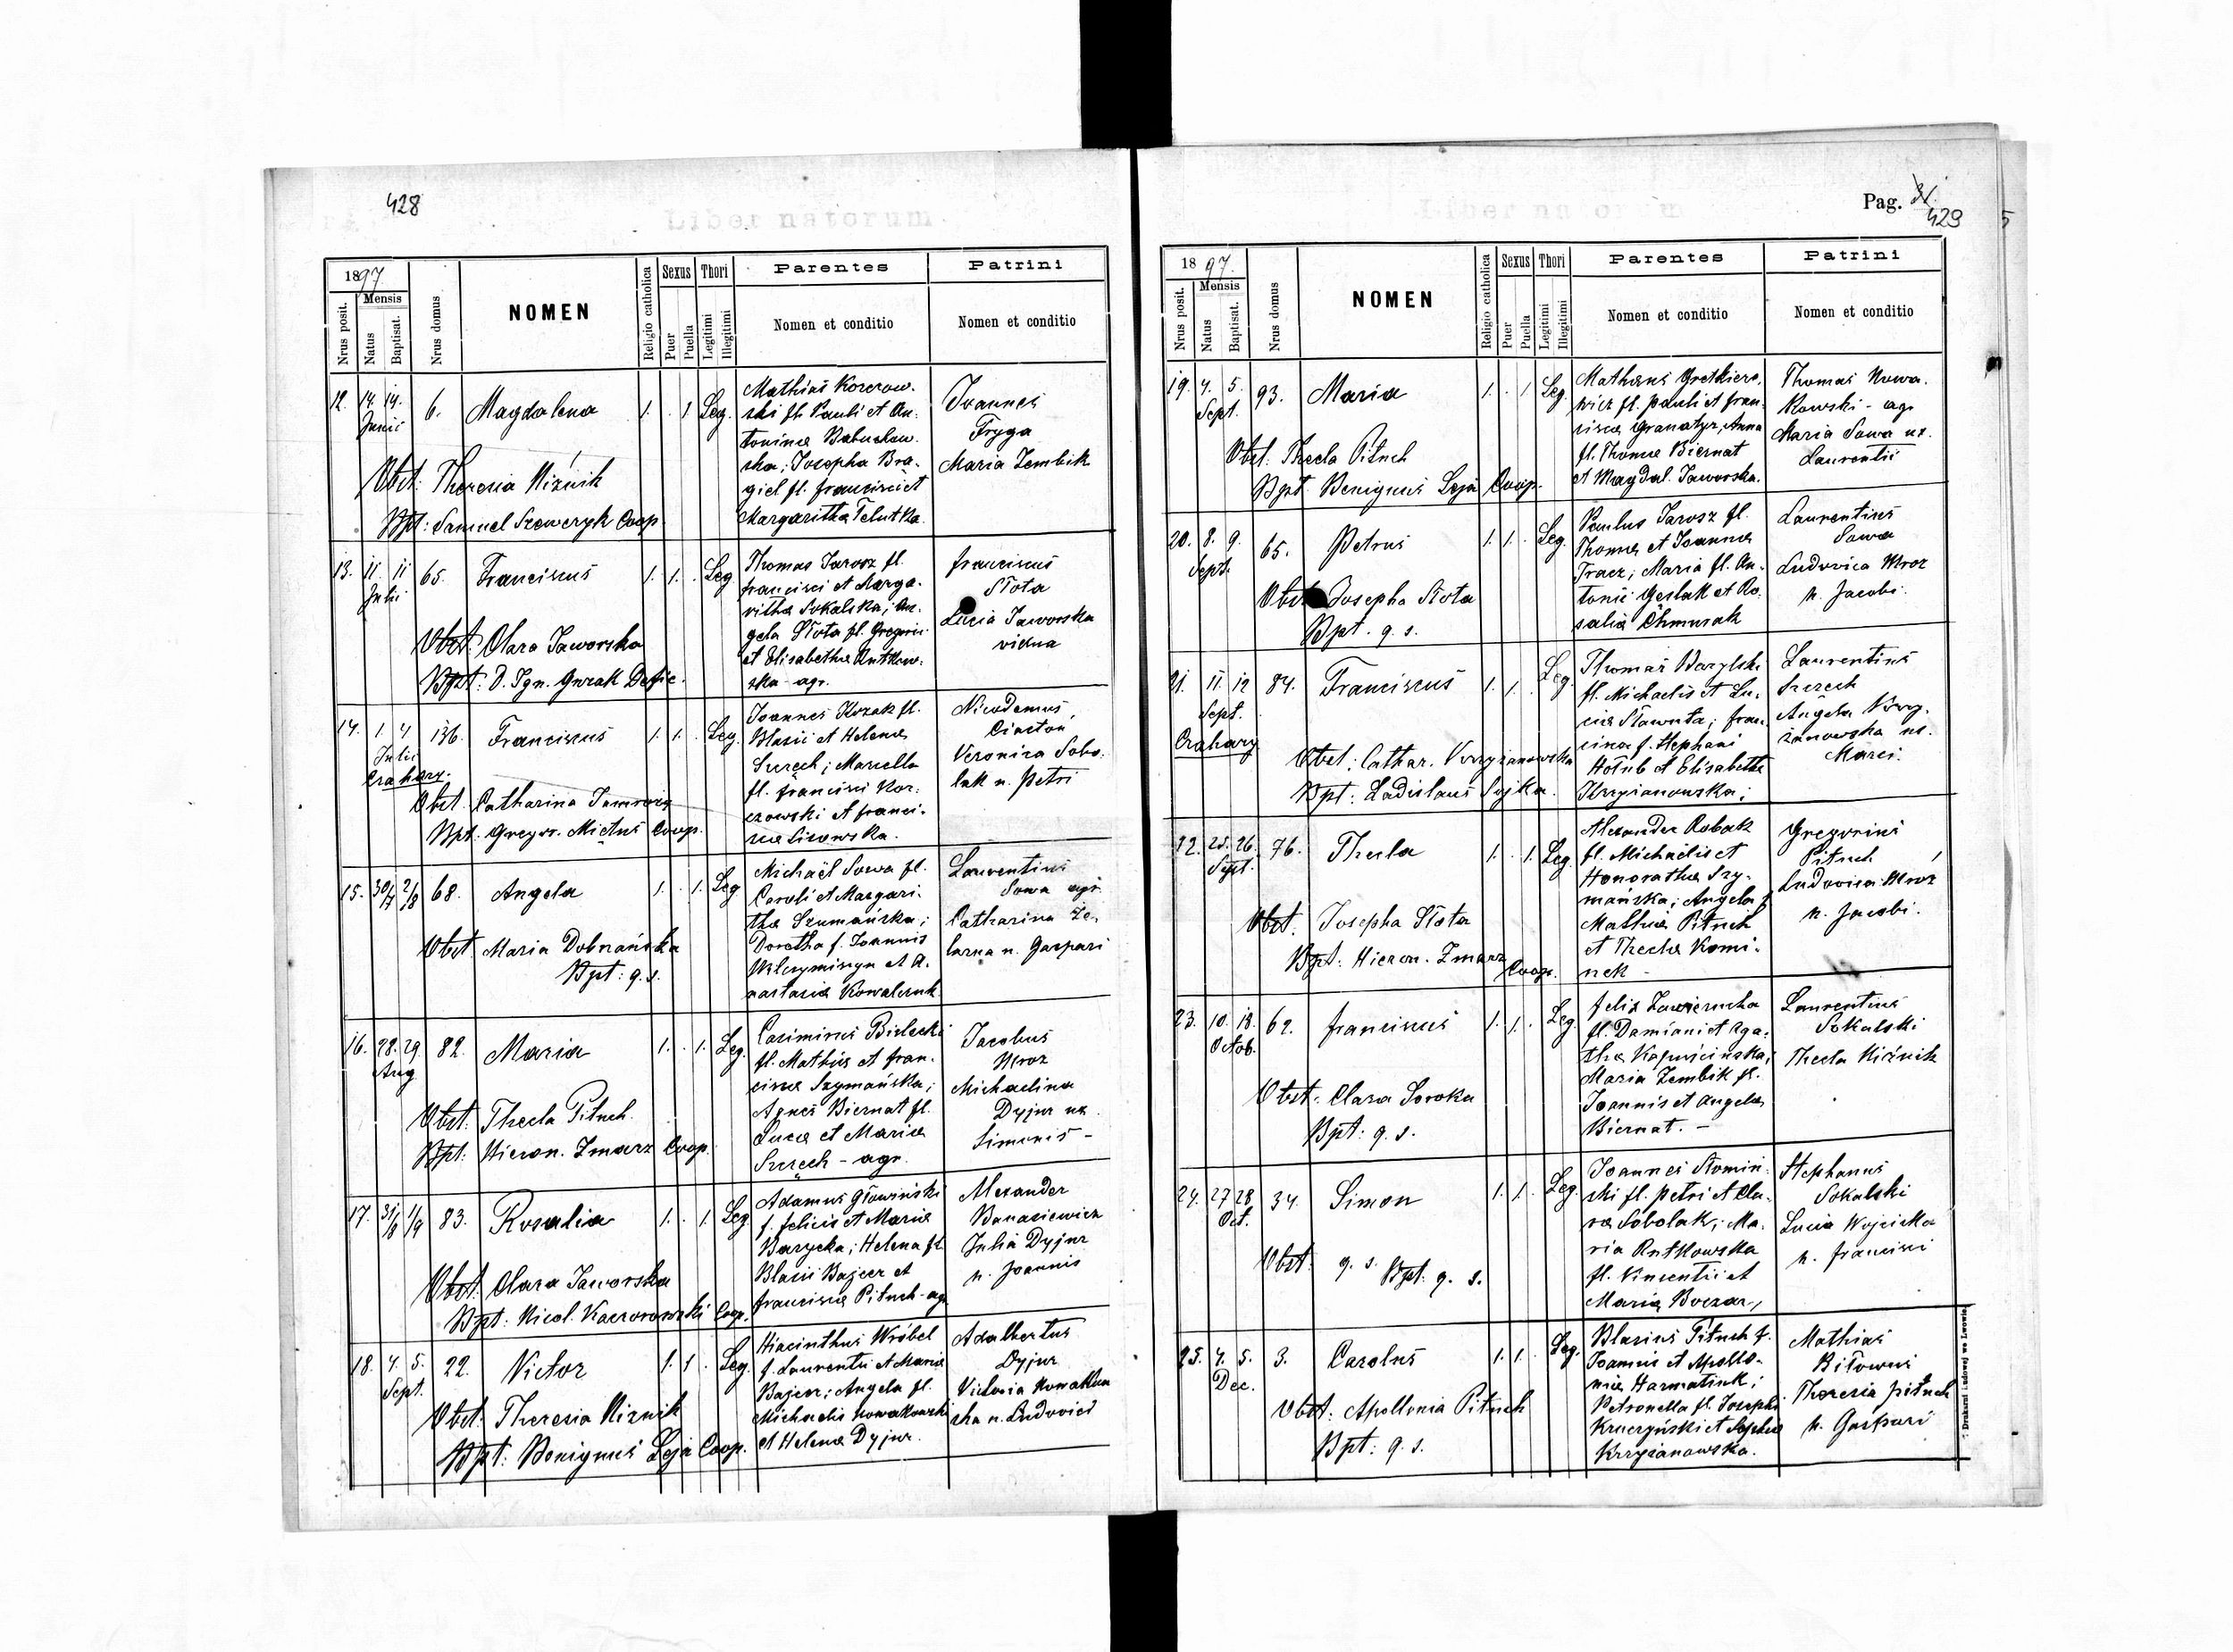 428
Liber natorum.
1897.
Nrus posit.
Mensis
Natus
Baptisat.
Nrus domus
NOMEN
Religio catholica
Sexus
Puer
Puella
Thori
Legitimi
Illegitimi
Parentes
Nomen et conditio
Patrini
Nomen et conditio
12. 14. 14. 6. Magdalena 1. . 1 Leg.
Junii
Obst: Theresia Niżnik
Bpt: Samuel Szewczyk Coop
Mathias Korczow-
ski fl. Pauli et An-
toninae
Josepha Bra-
giel fl. Francisci et
Margaritha Telutka
Joannes
Fryga
Maria Zembik
13. 11. 11 65. Franciscus 1. 1. . Leg
Julii
Obst: Clara Jaworska
Bpt: D. Ign. Gurak
Thomas Jarosz fl.
Francisci et Marga-
ritha Sokalska; An-
gela Słota fl. Gregorii
et Elisabetha Rutkow-
ska - agr.
Franciscus
Słota
Lucia Jaworska
vidua
14. 1. 4 136. Franciscus 1. 1. . Leg.
Julii
Czahary.
Obst. Catharina
Bpt. Gregor. Mietus Coop.
Joannes Kozak fl.
Blasii et Helenae
Szczech; Marcella
fl. Francisci Kor-
czowski et Franci-
sca Lisowska.
Nicodemus
Ciastoń
Veronica Sobo-
lak u. Petri
15. 30/7 2/8 68. Angela 1. . 1. Leg
Obst Maria Dobrzańska
Bpt: q. s.
Michaël Sowa fl.
Caroli et Margari-
tha Szumańska;
Dorotha f. Joannis
et A-
nastasia Kowalczuk
Laurentius
Sowa agr.
Catharina Że-
lazna u. Gaspari
16. 28. 29. 82. Maria 1. . 1. Leg.
Aug
Obst: Thecla Pituch.
Bpt: Hieron. Zmarz Coop.
Casimirus Bielecki
fl. Mathias et Fran-
cisca Szymańska;
Agnes Biernat fl.
Luca et Maria
Szczech - agr.
Jacobus
Mroz
Michaelina
Dyjur ux.
Simonis -
17. 31/8 1/9 83. Rosalia 1. . 1. Leg
Obst: Clara Jaworska
Bpt: Nicol. Kaczorowski Coop.
Adamus Głowiński
f. Felicis et Maria
Barycka; Helena fl.
Blasii Bajcar et
Francisca Pituch - agr
Alexander
Banasiewicz
Julia Dyjur
u. Joannis
18. 4. 5. 22. Victor 1. 1 . Leg.
Sept.
Obst: Theresia Niżnik
Bpt: Benignus Leja Coop.
Hiacinthus Wróbel
f. Laurentii et Maria
Bajcar; Angela fl.
Michaelis Nowakowski
et Helena Dyjur.
Adalbertus
Dyjur
Victoria Nowakow-
ska u. Ludovici
Pag. 31.
429
5
Liber natorum
1897.
Nrus posit.
Mensis
Natus
Baptisat.
Nrus domus
NOMEN
Religio catholica
Sexus
Puer
Puella
Thori
Legitimi
Illegitimi
Parentes
Nomen et conditio
Patrini
Nomen et conditio
19. 4. 5. 93. Maria 1. . 1 Leg.
Sept.
Obst: Thecla Pituch
Bpt. Benignus Leja Coop.
Matheus Gretkiere-
wicz fl. Pauli et Fran-
cisca Granatyr, Anna
fl. Thoma Biernat
et Magdal. Jaworska.
Thomas Nowa-
kowski - agr
Maria Sowa ux.
Laurentii
20. 8. 9. 65. Petrus 1. 1. . Leg.
Sept.
Obst. Josepha Słota
Bpt. q. s.
Paulus Jarosz fl.
Thoma et Joanna
Tracz; Maria fl. An-
tonii Geslak et Ro-
salia Chmurak
Laurentius
Sowa
Ludovica Mroz
u. Jacobi.
21. 11. 12 84. Franciscus 1. 1. . Leg.
Sept.
Czahary
Obst: Cathar. Krzyżanowska
Bpt: Ladislaus Sojka.
Thomas Barylski
fl. Michaelis et Lu-
cia Sławuta; Fran-
cisca f. Stephani
Hołub et Elisabetha
Krzyżanowska;
Laurentius
Szczech
Angela Krzy-
żanowska ux.
Marci.
22. 25. 26. 76. Thecla 1. . 1. Leg.
Sept.
Obst. Josepha Słota
Bpt: Hieron. Zmarz
Coop.
Alexander Robak
fl. Michaëlis et
Honoratha Szy-
mańska; Angela f.
Mathia Pituch
et Thecla Komi-
nek -
Gregorius
Pituch
Ludovica Mroz
u. Jacobi.
23. 10. 18. 62. Franciscus 1. 1. . Leg
Octob.
Obst: Clara Soroka
Bpt: q. s.
Felix Zawierucha
fl. Damiani et Aga-
tha Kapuścinska;
Maria Zembik fl.
Joannis et Angela
Biernat. -
Laurentius
Sokalski
Thecla Niżnik
24. 27 28 34. Simon 1. 1. . Leg.
Oct.
Obst. q. s. Bpt: q. s.
Joannes Słomiń-
ski fl. Petri et Cla-
ra Sobolak; Ma-
ria Rutkowska
fl. Vincentii et
Maria Boczar,
Stephanus
Sokalski
Lucia Wojcicka
u. Francisci
25. 4. 5. 3. Carolus 1. 1. . Leg.
Dec.
Obst: Apollonia Pituch
Bpt: q. s.
Blasius Pituch f.
Joannis et Apollo-
nia Harmatiuk;
Petronella fl. Josephi
Kruczyński et Sophia
Krzyżanowska.
Mathias
Biłowus
Theresia Pituch
u. Gaspari
Drukarni Ludowej we Lwowie.